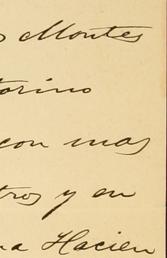 Montes
torino
con mas
tros y en
na Hacien